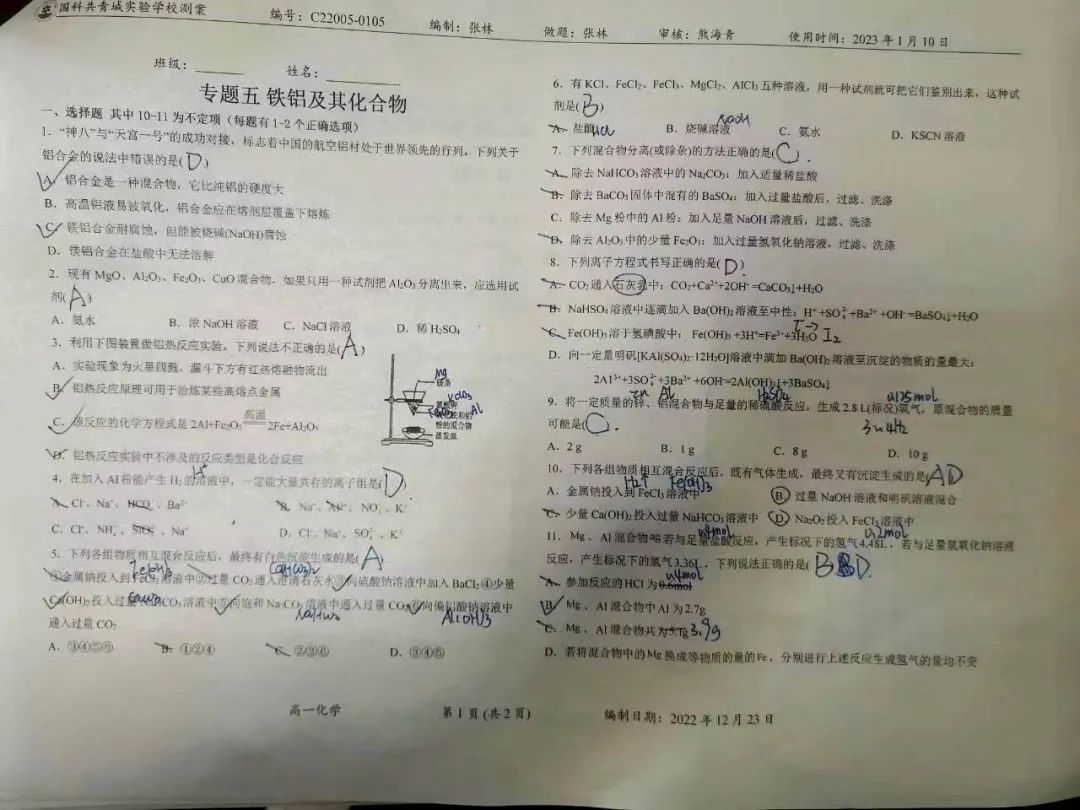 国科共青城实验学校测案 编号：C22005-0105 编制：张林 做题：张林 审核：熊海青 使用时间：2023年1月10日
班级： 姓名：
专题五 铁铝及其化合物
一、选择题 其中10-11为不定项（每题有1-2个正确选项）
1．“神八”与“天宫一号”的成功对接，标志着中国的航空铝材处于世界领先的行列。下列关于
铝合金的说法中错误的是(D)
A．铝合金是一种混合物，它比纯铝的硬度大
B．高温铝液易被氧化，铝合金应在熔剂层覆盖下熔炼
C．镁铝合金耐腐蚀，但能被烧碱(NaOH)腐蚀
D．镁铝合金在盐酸中无法溶解
2．现有MgO、Al₂O₃、Fe₂O₃、CuO混合物，如果只用一种试剂把Al₂O₃分离出来，应选用试
剂(A)
A．氨水 B．浓NaOH溶液 C．NaCl溶液 D．稀H₂SO₄
3．利用下图装置做铝热反应实验。下列说法不正确的是(A)
A．实验现象为火星四溅，漏斗下方有红热熔融物流出
B．铝热反应原理可用于冶炼某些高熔点金属
C．该反应的化学方程式是2Al+Fe₂O₃ 高温 2Fe+Al₂O₃
D．铝热反应实验中不涉及的反应类型是化合反应
Mg
镁条
KClO₃
Al
粉的混合物
蒸发皿
4．在加入Al粉能产生H₂的溶液中，一定能大量共存的离子组是(D)
H⁺
A．Cl⁻、Na⁺、HCO₃⁻、Ba²⁺ B．Na⁺、Al³⁺、NO₃⁻、K⁺
C．Cl⁻、NH₄⁺、SiO₃²⁻、Na⁺ D．Cl⁻、Na⁺、SO₄²⁻、K⁺
5．下列各组物质相互混合反应后，最终有白色沉淀生成的是(A)
Fe(OH)₃ Ca(HCO₃)₂
①金属钠投入到FeCl₃溶液中②过量CO₂通入澄清石灰水③向硫酸钠溶液中加入BaCl₂④少量
CaCO₃ NaHCO₃ Al(OH)₃
Ca(OH)₂投入过量NaHCO₃溶液中⑤向饱和Na₂CO₃溶液中通入过量CO₂⑥向偏铝酸钠溶液中
通入过量CO₂
A．③④⑤⑥ B．①②④ C．②③⑥ D．③④⑥
6．有KCl、FeCl₂、FeCl₃、MgCl₂、AlCl₃五种溶液，用一种试剂就可把它们鉴别出来，这种试
剂是(B)
A．盐酸HCl B．烧碱溶液 NaOH C．氨水 D．KSCN溶液
7．下列混合物分离(或除杂)的方法正确的是(C)
A．除去NaHCO₃溶液中的Na₂CO₃：加入适量稀盐酸
B．除去BaCO₃固体中混有的BaSO₄：加入过量盐酸后，过滤、洗涤
C．除去Mg粉中的Al粉：加入足量NaOH溶液后，过滤、洗涤
D．除去Al₂O₃中的少量Fe₂O₃：加入过量氢氧化钠溶液，过滤、洗涤
8．下列离子方程式书写正确的是(D)
A．CO₂通入石灰乳中：CO₂+Ca²⁺+2OH⁻=CaCO₃↓+H₂O
B．NaHSO₄溶液中逐滴加入Ba(OH)₂溶液至中性：H⁺+SO₄²⁻+Ba²⁺+OH⁻=BaSO₄↓+H₂O
C．Fe(OH)₃溶于氢碘酸中：Fe(OH)₃+3H⁺=Fe³⁺+3H₂O I⁻→I₂
D．向一定量明矾[KAl(SO₄)₂·12H₂O]溶液中滴加Ba(OH)₂溶液至沉淀的物质的量最大：
2Al³⁺+3SO₄²⁻+3Ba²⁺+6OH⁻=2Al(OH)₃↓+3BaSO₄↓
Zn Al H₂SO₄ 0.125mol
9．将一定质量的锌、铝混合物与足量的稀硫酸反应，生成2.8L(标况)氢气，原混合物的质量
可能是(C)
A．2g B．1g C．8g D．10g
10．下列各组物质相互混合反应后，既有气体生成，最终又有沉淀生成的是(AD)
H₂↑ Fe(OH)₃
A．金属钠投入到FeCl₃溶液中 B．过量NaOH溶液和明矾溶液混合
C．少量Ca(OH)₂投入过量NaHCO₃溶液中 D．Na₂O₂投入FeCl₃溶液中
0.2mol
11．Mg、Al混合物中若与足量盐酸反应，产生标况下的氢气4.48L，若与足量氢氧化钠溶液
反应，产生标况下的氢气3.36L，下列说法正确的是(B D)
0.4mol
A．参加反应的HCl为0.6mol
B．Mg、Al混合物中Al为2.7g
C．Mg、Al混合物共为5.1g 3.9g
D．若将混合物中的Mg换成等物质的量的Fe，分别进行上述反应生成氢气的量均不变
高一化学 第1页(共2页) 编制日期：2022年12月23日